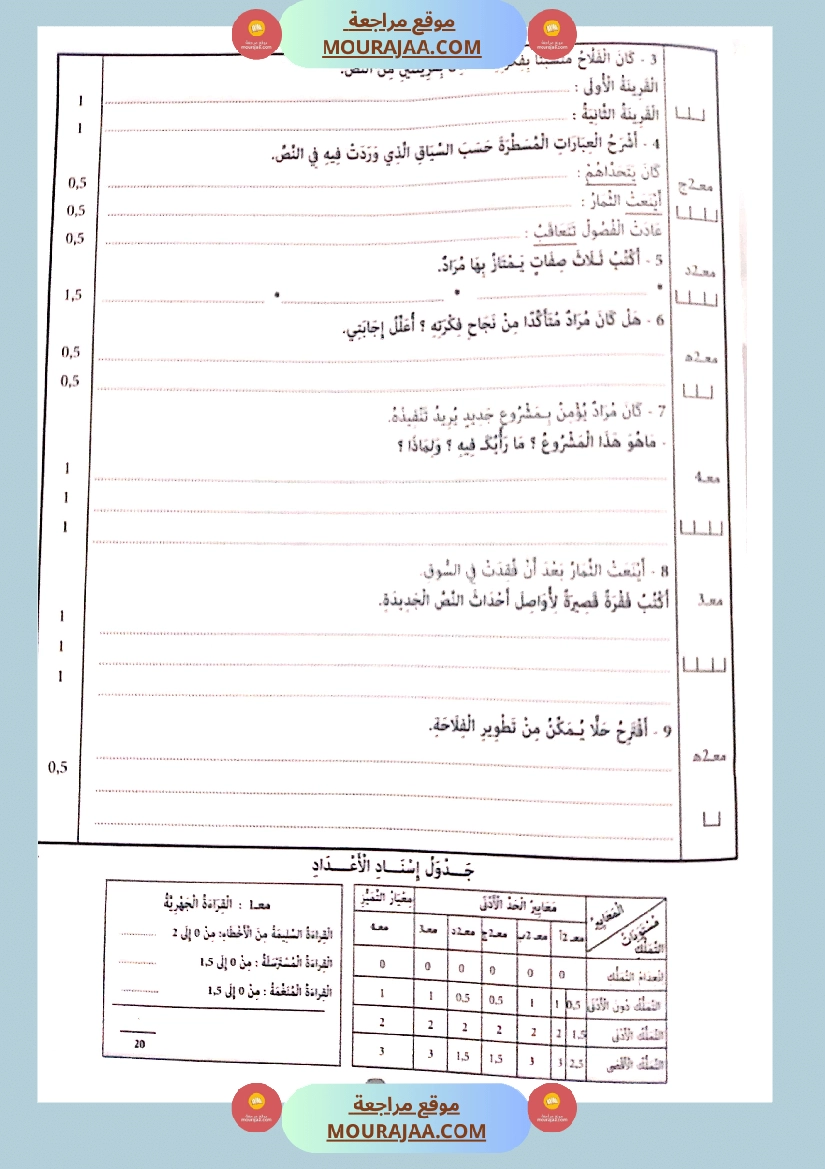 موقع مراجعة
MOURAJAA.COM
3 - كَانَ الْفَلَّاحُ
الْقَرِينَةُ الْأُولَى : 
1
الْقَرِينَةُ الثَّانِيَةُ : 
1
4 - أَشْرَحُ الْعِبَارَاتِ الْمُسَطَّرَةَ حَسَبَ السِّيَاقِ الَّذِي وَرَدَتْ فِيهِ فِي النَّصِّ.
معـ2ج
كَانَ يَتَحَدَّاهُمْ :
0,5
أَيْنَعَتْ الثِّمَارُ :
0,5
عَادَتْ الْفُصُولُ تَتَعَاقَبُ :
0,5
5 - أَكْتُبُ ثَلَاثَ صِفَاتٍ يَمْتَازُ بِهَا مُرَادٌ.
معـ2د
* * *
1,5
6 - هَلْ كَانَ مُرَادٌ مُتَأَكِّدًا مِنْ نَجَاحِ فِكْرَتِهِ ؟ أُعَلِّلُ إِجَابَتِي.
معـ2ه
0,5
0,5
7 - كَانَ مُرَادٌ يُؤْمِنُ بِمَشْرُوعٍ جَدِيدٍ يُرِيدُ تَنْفِيذَهُ.
- مَاهُوَ هَذَا الْمَشْرُوعُ ؟ مَا رَأْيُكَ فِيهِ ؟ وَلِمَاذَا ؟
معـ4
1
1
1
8 - أَيْنَعَتْ الثِّمَارُ بَعْدَ أَنْ فُقِدَتْ فِي السُّوقِ.
أَكْتُبُ فَقْرَةً قَصِيرَةً لِأُوَاصِلَ أَحْدَاثَ النَّصِّ الْجَدِيدَةِ.
معـ3
1
1
1
9 - أَقْتَرِحُ حَلًّا يُمَكِّنُ مِنْ تَطْوِيرِ الْفِلَاحَةِ.
معـ2ه
0,5
جَدْوَلُ إِسْنَادِ الْأَعْدَادِ
الْمَعَايِيرُ مَعَايِيرُ الْحَدِّ الْأَدْنَى مِعْيَارُ التَّمَيُّزِ
مُسْتَوَيَاتُ التَّمَلُّكِ معـ2أ معـ2ب معـ2ج معـ2د معـ3 معـ4
انْعِدَامُ التَّمَلُّكِ 0 0 0 0 0 0
التَّمَلُّكُ دُونَ الْأَدْنَى 0,5 1 1 0,5 0,5 1 1
التَّمَلُّكُ الْأَدْنَى 1,5 2 2 2 2 2 2
التَّمَلُّكُ الْأَقْصَى 2,5 3 3 1,5 1,5 3 3
معـ1 : الْقِرَاءَةُ الْجَهْرِيَّةُ
الْقِرَاءَةُ السَّلِيمَةُ مِنَ الْأَخْطَاءِ: مِنْ 0 إِلَى 2
الْقِرَاءَةُ الْمُسْتَرْسَلَةُ : مِنْ 0 إِلَى 1,5
الْقِرَاءَةُ الْمُنَغَّمَةُ : مِنْ 0 إِلَى 1,5
20
موقع مراجعة
MOURAJAA.COM